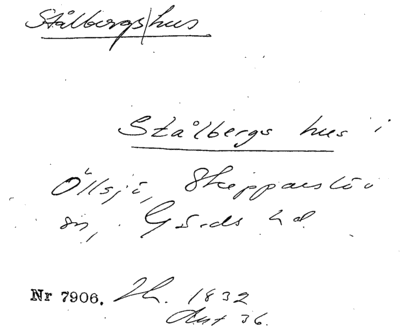 Stålbergs|hus
Stålbergs hus i
Öllsjö, Skepparslöv
sn, Gärds hd.
Nr 7906. 1832
36.